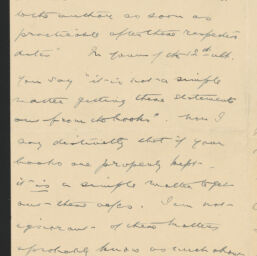 both author so soon as
practicable after these respective
dates" In yours of the 12th ult.
you say "it is not a simple
matter getting these statements
out from the books". Now I
say distinctly that if your
books are properly kept
it is a simple matter to get
out these a/cs. I am not
ignorant of these matters
& probably know as much about